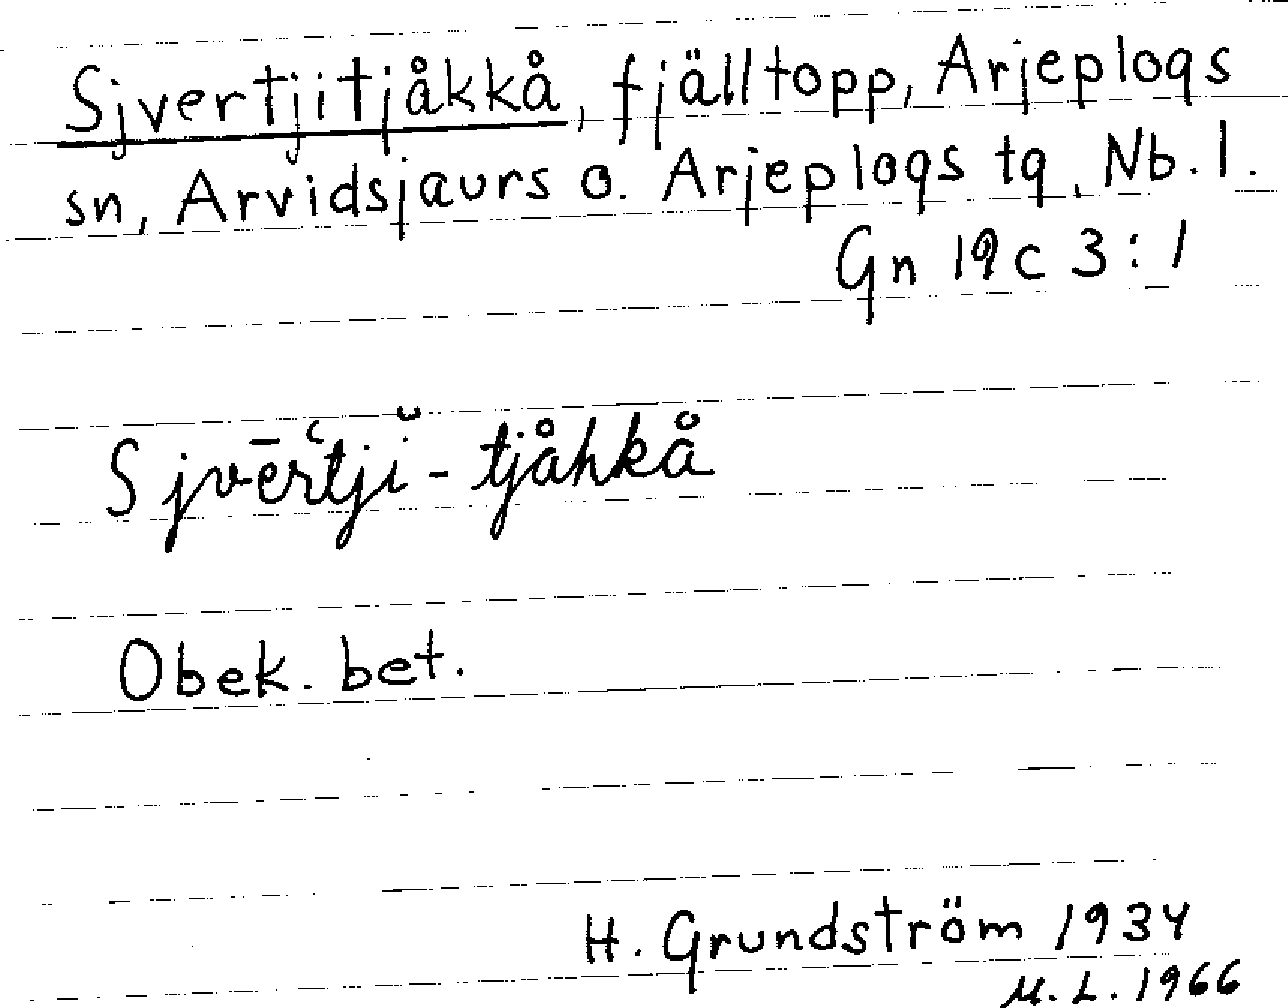 Sjvertjitjåkkå, fjälltopp, Arjeplogs
sn, Arvidsjaurs o. Arjeplogs tg, Nb. l.
Gn 19c 3:1
Sjvērʿtjĭ-tjåhkå
Obek. bet.
H. Grundström 1934
M. L. 1966